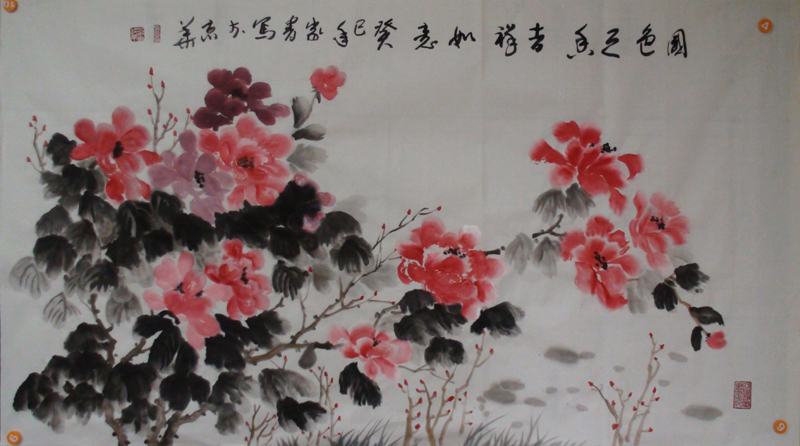 國色天香吉祥如意癸巳年写於京華